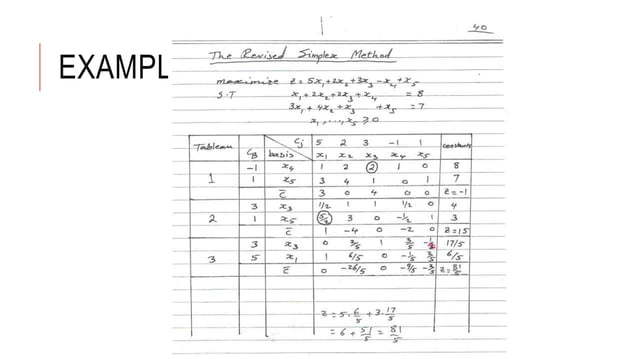 40
EXAMPL
The Revised Simplex Method
maximize z = 5x₁+2x₂+3x₃-x₄+x₅
S.T x₁+2x₂+2x₃+x₄ = 8
3x₁+4x₂+x₃ +x₅ = 7
x₁, ..., x₅ ≥ 0
Tableau C_B basis C_j 5 2 3 -1 1 constants
x₁ x₂ x₃ x₄ x₅
-1 x₄ 1 2 2 1 0 8
1 1 x₅ 3 4 1 0 1 7
C̄ 3 0 4 0 0 z=-1
3 x₃ 1/2 1 1 1/2 0 4
2 1 x₅ 5/2 3 0 -1/2 1 3
C̄ 1 -4 0 -2 0 z=15
3 x₃ 0 2/5 1 3/5 17/5
3 5 x₁ 1 6/5 0 -1/5 2/5 6/5
C̄ 0 -26/5 0 -9/5 z=81/5
z = 5·6/5 + 3·17/5
= 6 + 51/5 = 81/5